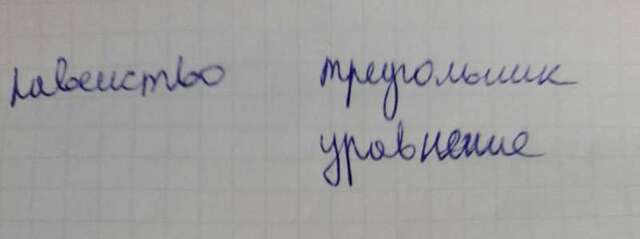 равенство треугольник
уравнение